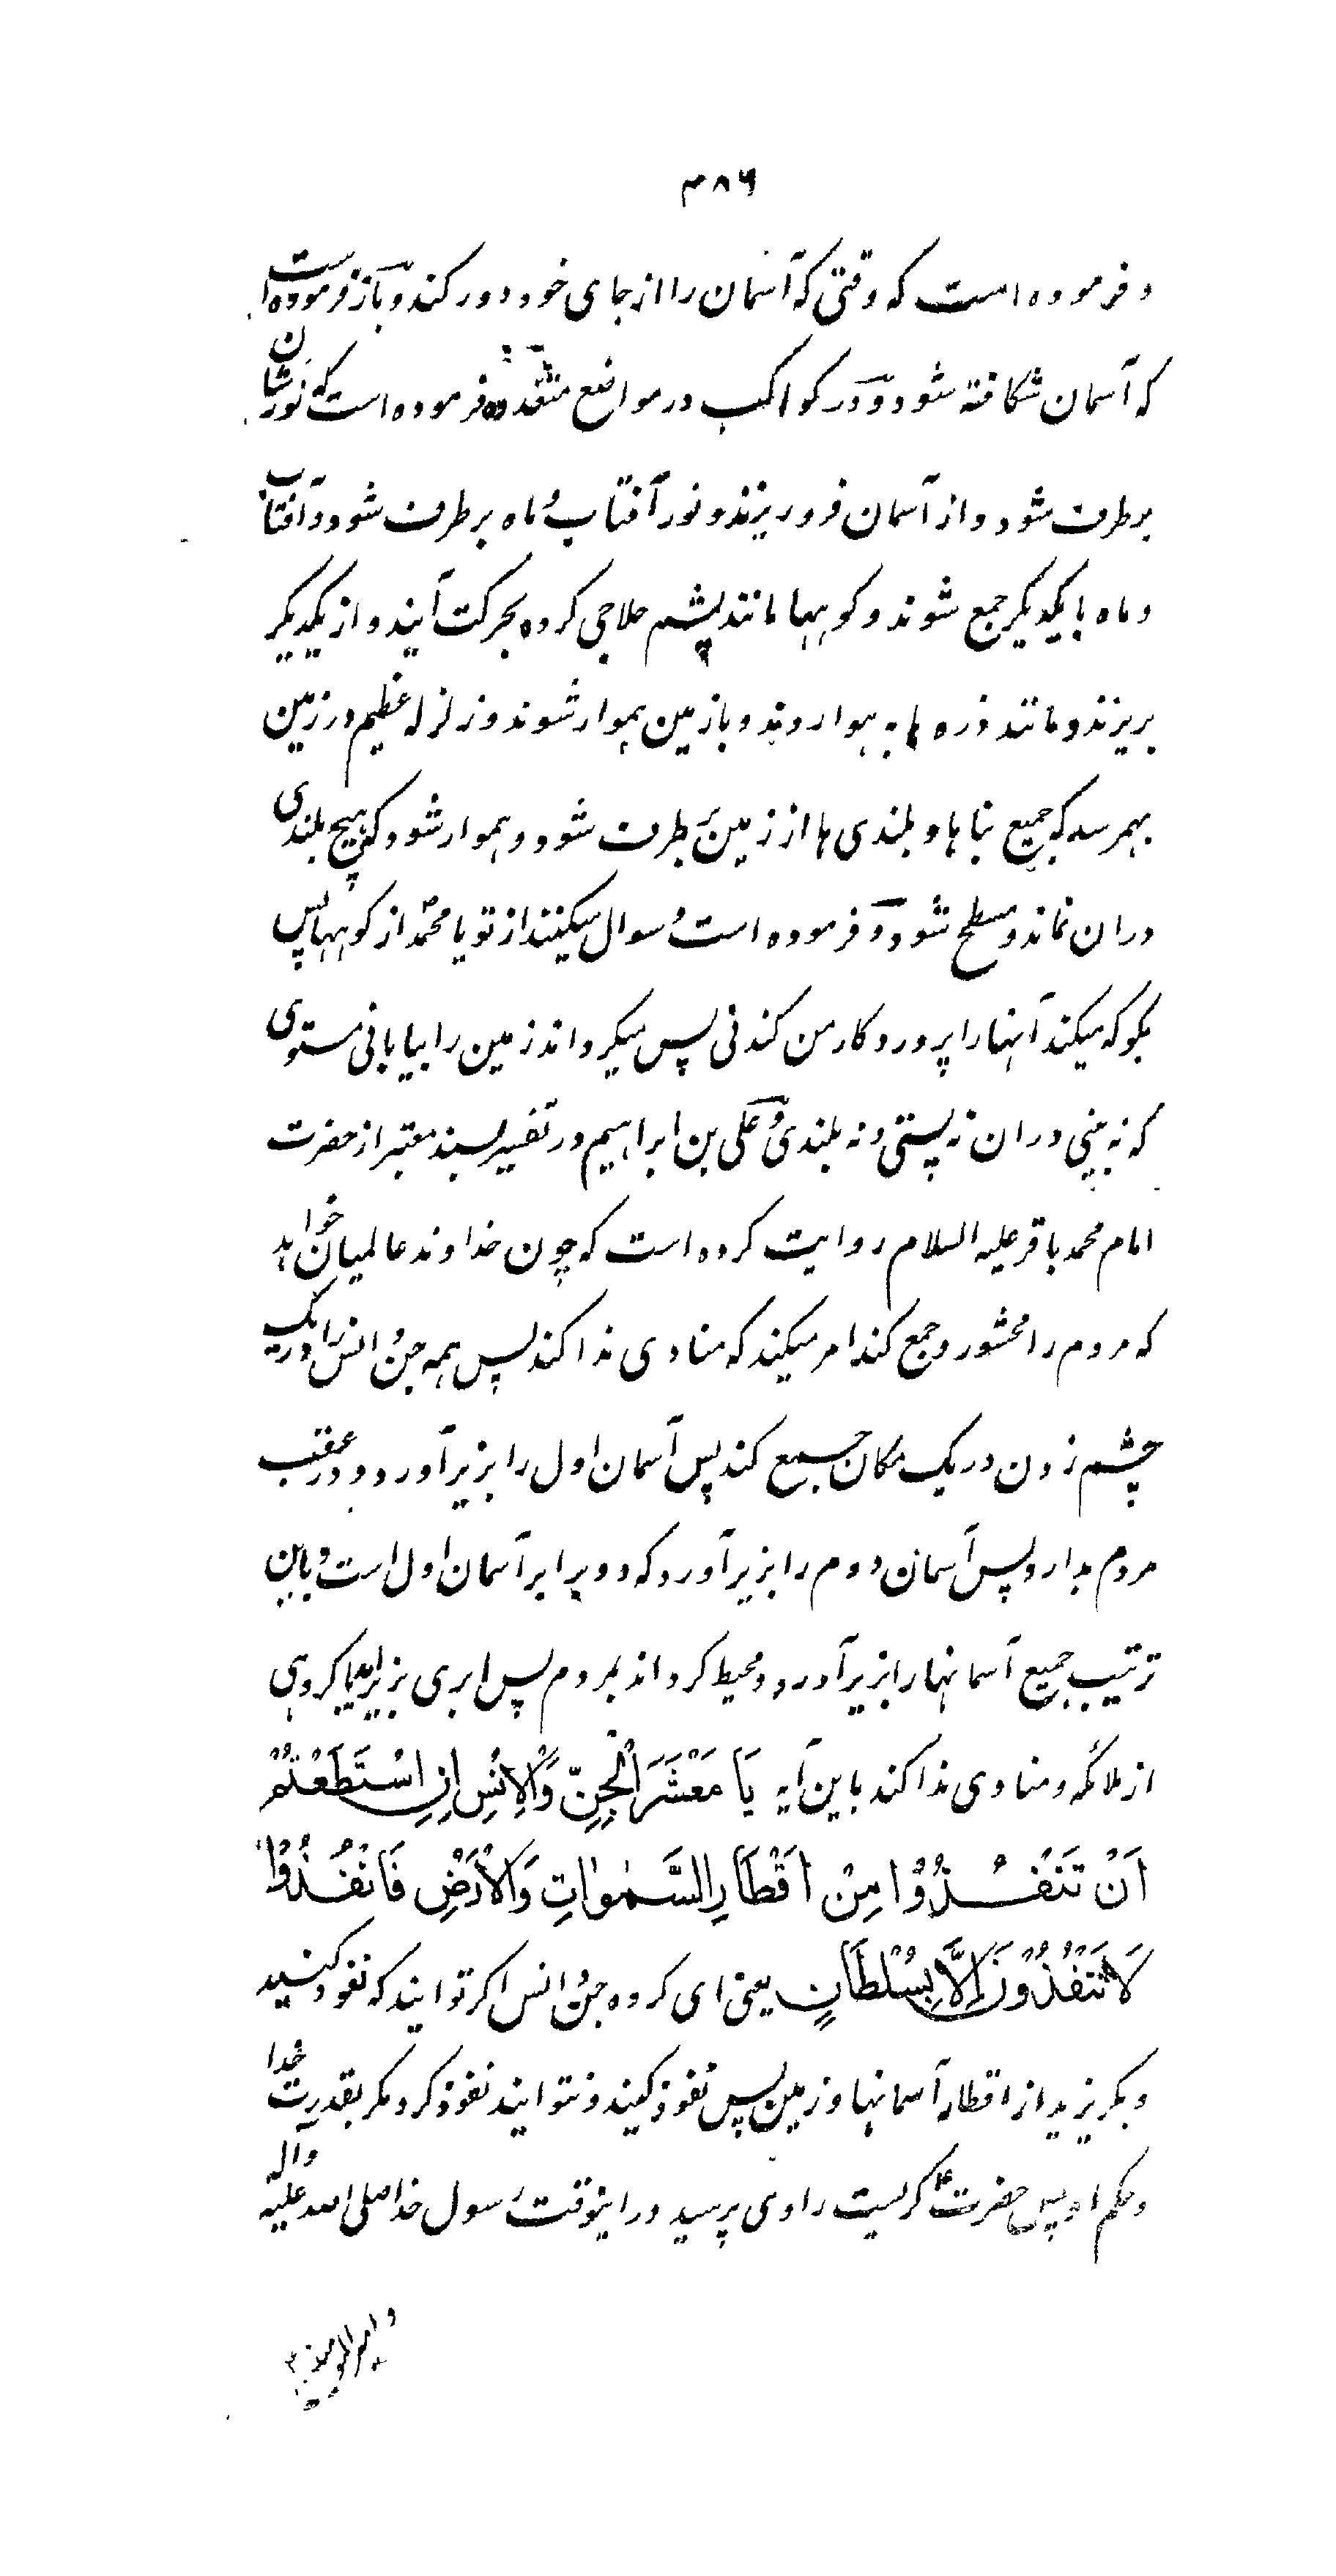 ۳۸۶
و فرموده است که وقتی که آسمان را از جای خود دور کند و باز فرموده است
که آسمان شکافته شود و در کواکب در مواضع متعدده فرموده است که نورشان
برطرف شود و از آسمان فرو ریزند و نور آفتاب و ماه برطرف شود و آفتاب
و ماه با یکدیگر جمع شوند و کوهها مانند پشم حلاجی کرده بحرکت آیند و از یکدیگر
بریزند و مانند ذره ها به هوا روند و با زمین هموار شوند و زلزله عظیم در زمین
بهمرسد که جمیع بناها و بلندی ها از زمین برطرف شود و هموار شود که هیچ بلندی
دران نماند و مسطح شود و فرموده است و سوال میکنند از تو یا محمد از کوهها پس
بگو که میکند آنها را پروردگار من کندنی پس میگرداند زمین را بیابانی مستوی
که نه بینی دران نه پستی و نه بلندی و علی بن ابراهیم در تفسیر بسند معتبر از حضرت
امام محمد باقر علیه السلام روایت کرده است که چون خداوند عالمیان خواهد
که مردم را محشور و جمع کند امر میکند که منادی ندا کند پس همه جن و انس را در یک
چشم زدن در یک مکان جمع کند پس آسمان اول را بزیر آورد و در عقب
مردم بدارد پس آسمان دوم را بزیر آورد که دو برابر آسمان اول است و باین
ترتیب جمیع آسمانها را بزیر آورد و محیط گرداند بمردم پس ابری بزیر آید با گروهی
از ملائکه و منادی ندا کند باین آیه یَا مَعْشَرَ الْجِنِّ وَالْاِنْسِ اِنِ اسْتَطَعْتُمْ
اَنْ تَنْفُذُوْا مِنْ اَقْطَارِ السَّمٰوٰاتِ وَالْاَرْضِ فَانْفُذُوْا
لَا تَنْفُذُوْنَ اِلَّا بِسُلْطَانٍ یعنی ای گروه جن و انس اگر توانید که نفوذ کنید
و بگریزید از اقطار آسمانها و زمین پس نفوذ کنید و نتوانید نفوذ کرد مگر بقدرت خدا
و حکم او پس حضرت ع گریست راوی پرسید در اینوقت رسول خدا صلی الله علیه وآله
و امیر المومنین